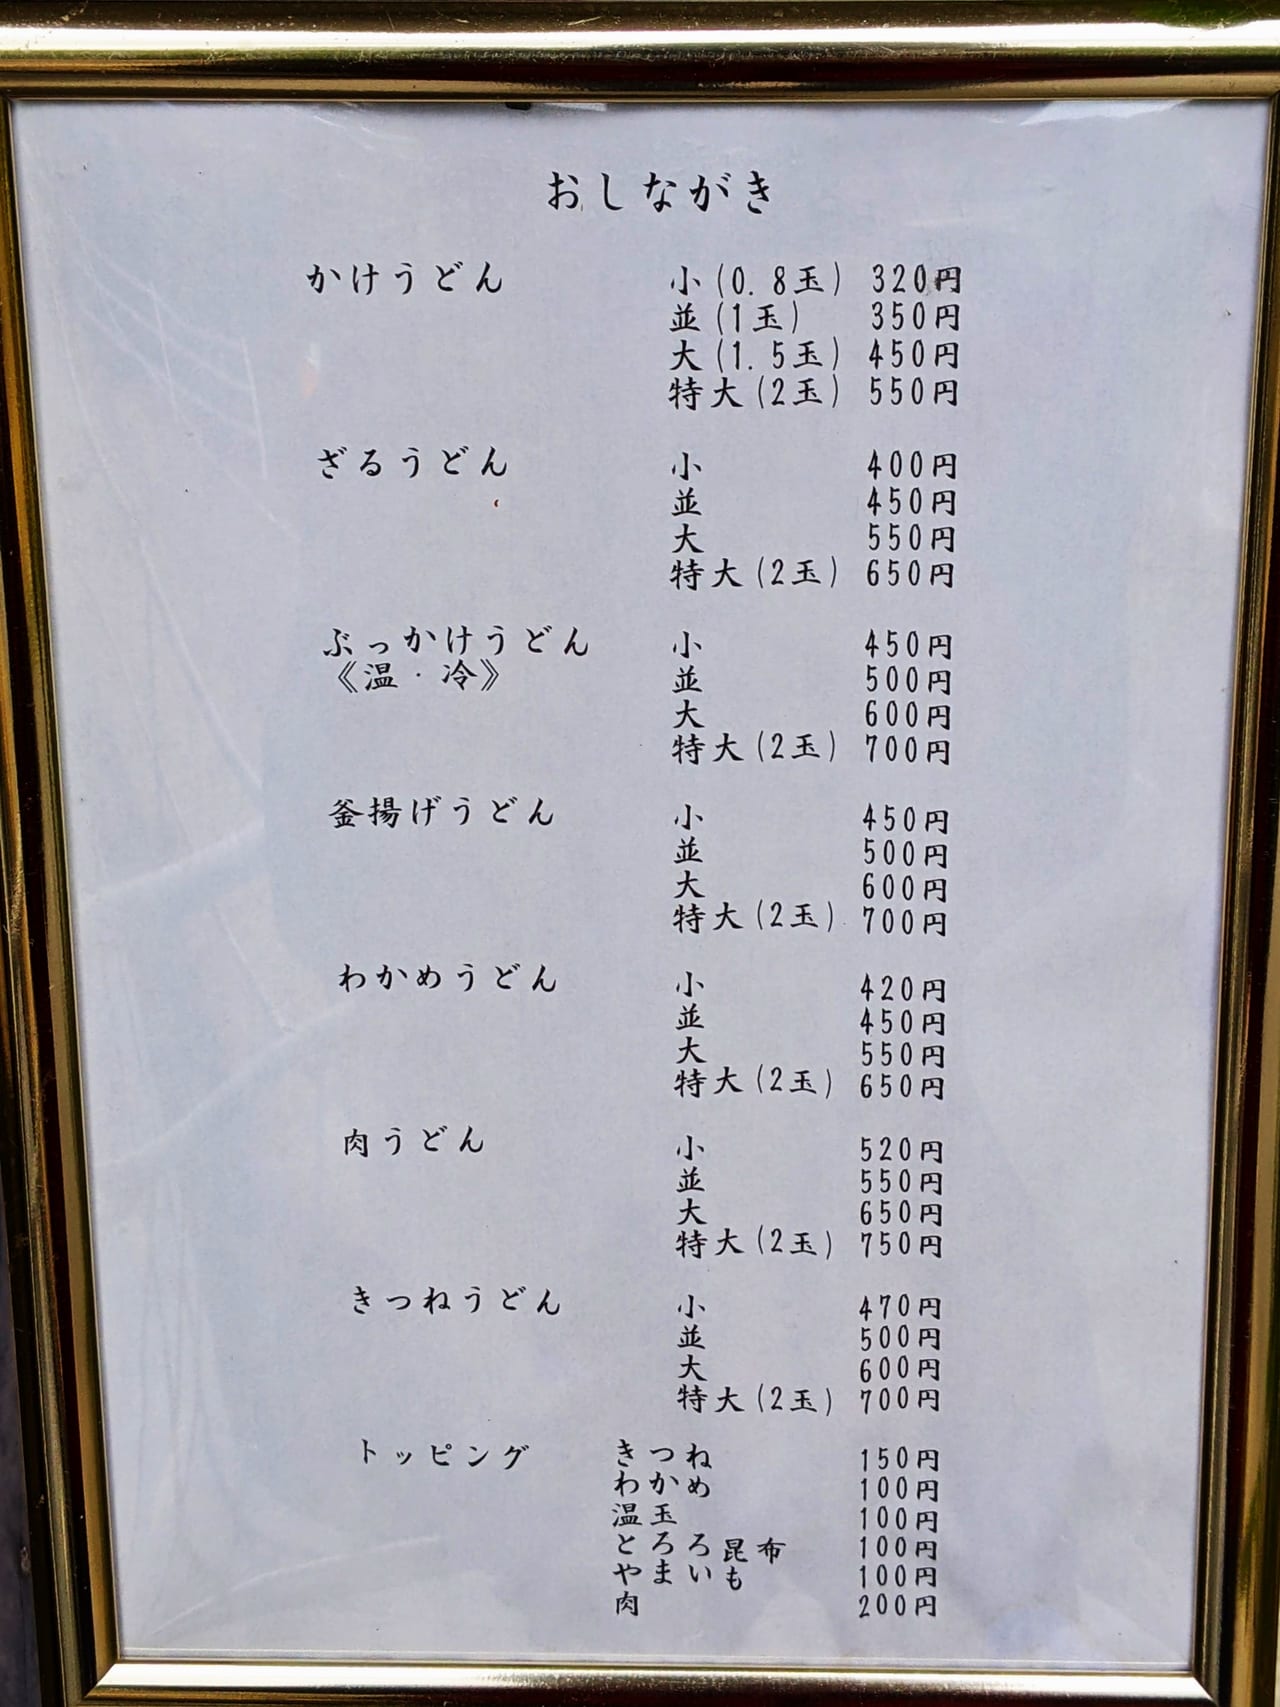 おしながき
かけうどん 小(0.8玉) 320円
並(1玉) 350円
大(1.5玉) 450円
特大(2玉) 550円
ざるうどん 小 400円
並 450円
大 550円
特大(2玉) 650円
ぶっかけうどん 小 450円
《温・冷》 並 500円
大 600円
特大(2玉) 700円
釜揚げうどん 小 450円
並 500円
大 600円
特大(2玉) 700円
わかめうどん 小 420円
並 450円
大 550円
特大(2玉) 650円
肉うどん 小 520円
並 550円
大 650円
特大(2玉) 750円
きつねうどん 小 470円
並 500円
大 600円
特大(2玉) 700円
トッピング きつね 150円
わかめ 100円
温玉 100円
とろろ昆布 100円
やまいも 100円
肉 200円